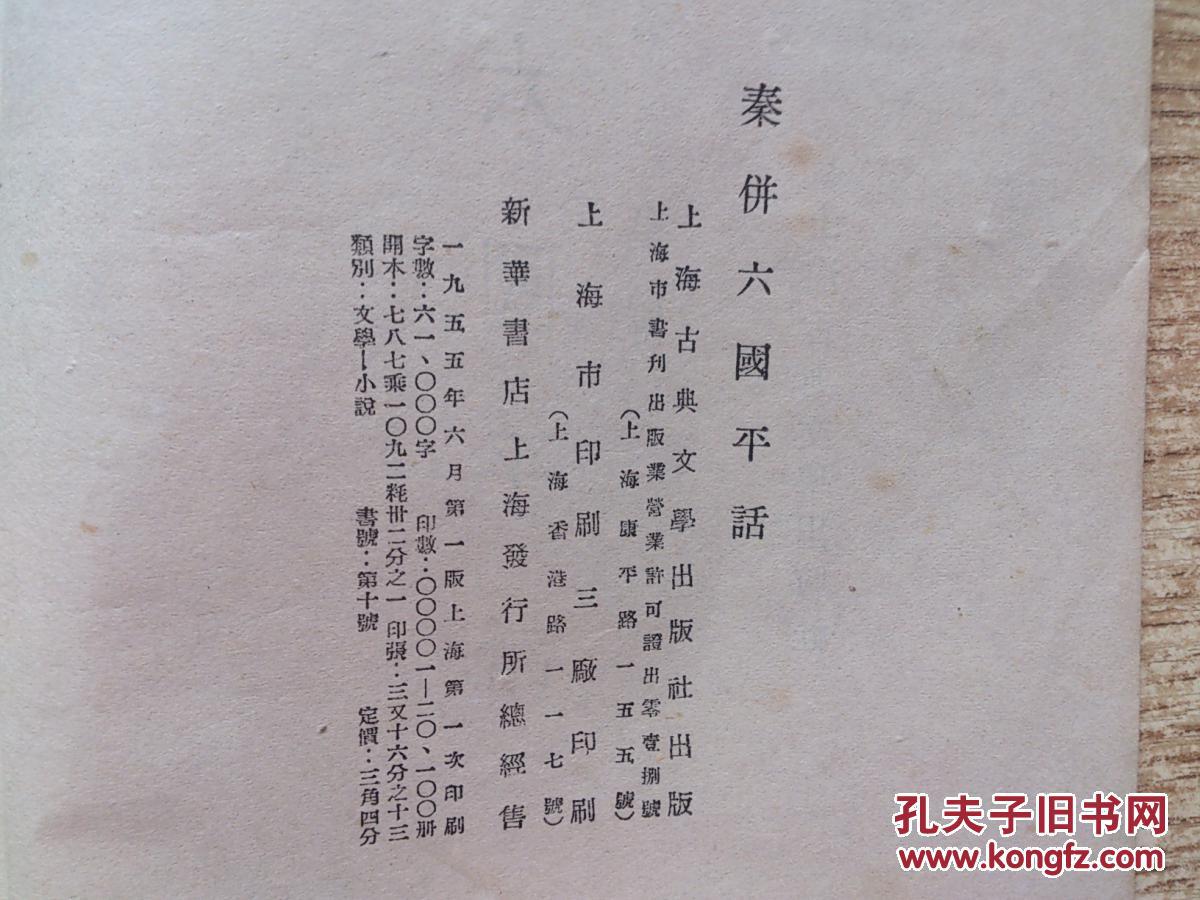 秦併六國平話
上海古典文學出版社出版
上海市書刊出版業營業許可證出零壹捌號
(上海康平路一五五號)
上海市印刷三廠印刷
(上海香港路一一七號)
新華書店上海發行所總經售
一九五五年六月第一版上海第一次印刷
字數：六一、〇〇〇字 印數：〇〇〇〇一—二〇、一〇〇册
開本：七八七乘一〇九二粍卅二分之一 印張：三又十六分之十三
類別：文學—小說 書號：第十號 定價：三角四分
孔夫子旧书网
www.kongfz.com